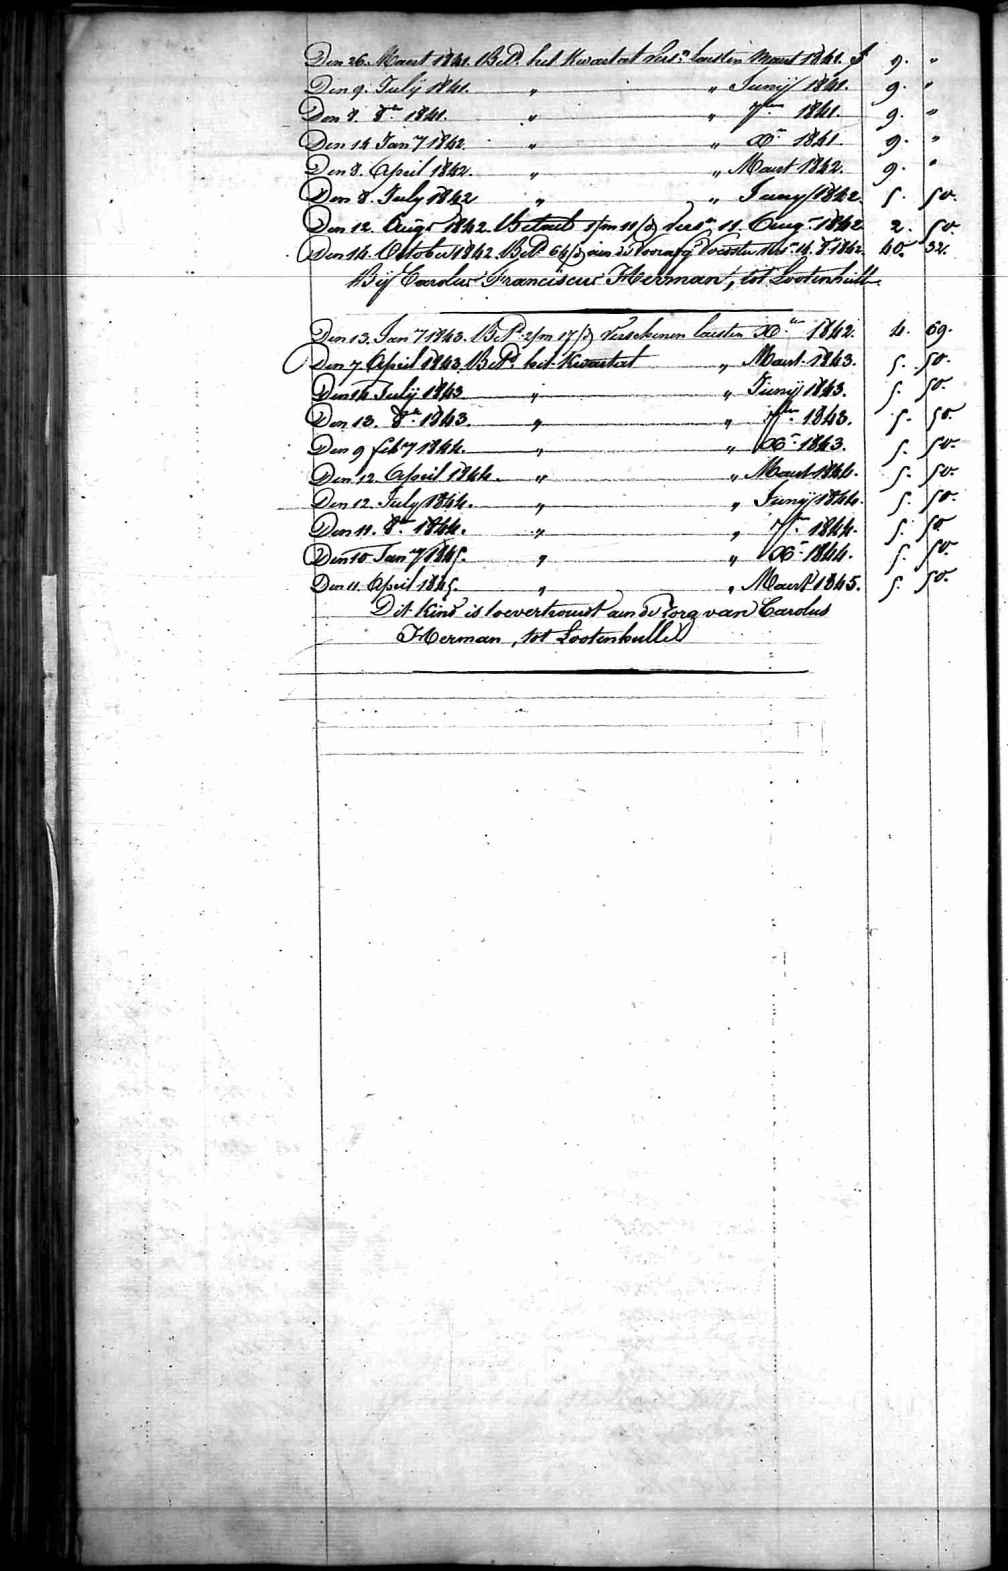 Den 26. Maert 1841. Betd. het Kwartaal versn. laesten Maert 1841. f 9. "
Den 9. July 1841. " " Junij 1841. 9. "
Den 8. 8er 1841. " " 7ber 1841. 9. "
Den 14 Jany 1842. " " Xr 1841 9. "
Den 8. April 1842. " " Maert 1842. 9. "
Den 8. July 1842 " " Juny 1842. 5. 50.
Den 12. Augt 1842. Betaelt 1/m 11/d versn 11. Augt 1842 2. 50.
Den 14. October 1842. Betd 64/d aen de Voester 14. 8r 1842. 40. 32.
Bij Carolus Franciscus Herman, tot Lootenhulle.
Den 13. Jany 1843. Betd. 2/m 17/d verschenen laesten Xer 1842. 4. 69.
Den 7. April 1843. Betd. het Kwartaal " Maert 1843. 5. 50.
Den 14 Julij 1843 " " Junij 1843. 5. 50.
Den 13. 8er 1843. " " 7ber 1843. 5. 50.
Den 9 feby 1844. " " Xr 1843. 5. 50.
Den 12. April 1844. " " Maert 1844. 5. 50.
Den 12. July 1844. " " Junij 1844. 5. 50.
Den 11. 8er 1844. " " 7ber 1844. 5. 50
Den 10 Jany 1845. " " Xr 1844. 5. 50.
Den 11. April 1845. " " Maert 1845. 5. 50.
Dit Kind is toevertrouwt aen de Zorg van Carolus
Herman, tot Lootenhulle